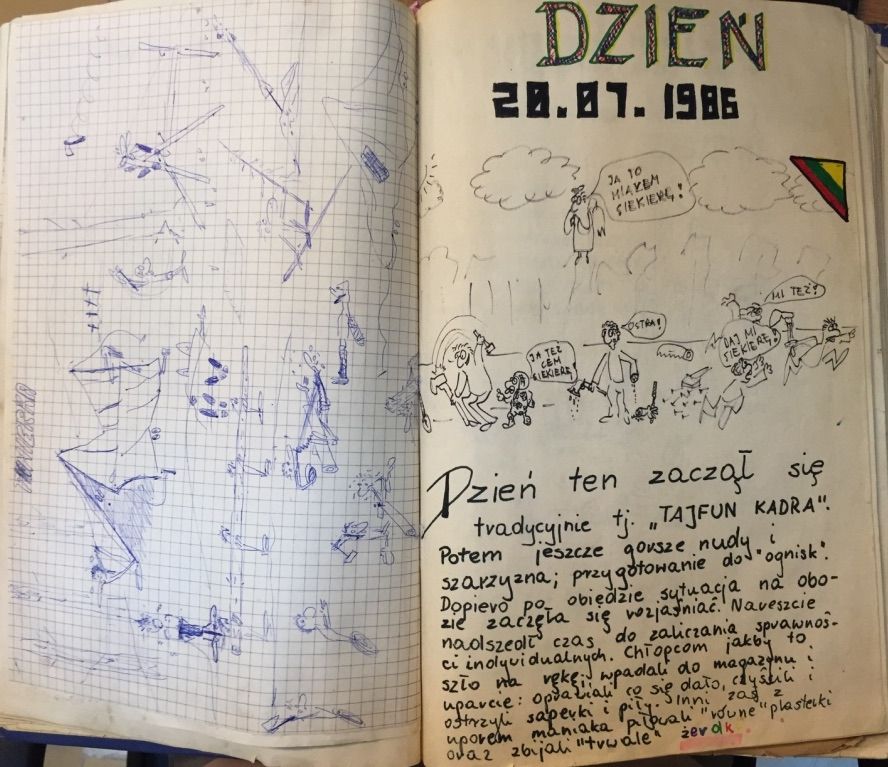 DZIEŃ
20.07.1986
JA TO
MIAŁEM
SIEKIERĘ!
MI TEŻ!
OSTRA!
DAJ MI
SIEKIERĘ!
JA TEŻ
CEM
SIEKIERĘ!
Dzień ten zaczął się
tradycyjnie tj. „TAJFUN KADRA".
Potem jeszcze gorsze nudy i
szarzyzna; przygotowanie do "ognisk".
Dopiero po obiedzie sytuacja na obo-
zie zaczęła się rozjaśniać. Nareszcie
nadszedł czas do zaliczania sprawnoś-
ci indywidualnych. Chłopcom jakby to
szło na rękę; wpadali do magazynu i
uparcie: oprawiali co się dało, czyścili i
ostrzyli saperki i piły. Inni zaś z
uporem maniaka piłowali "równe" plasterki
oraz zbijali "trwałe" żerdk